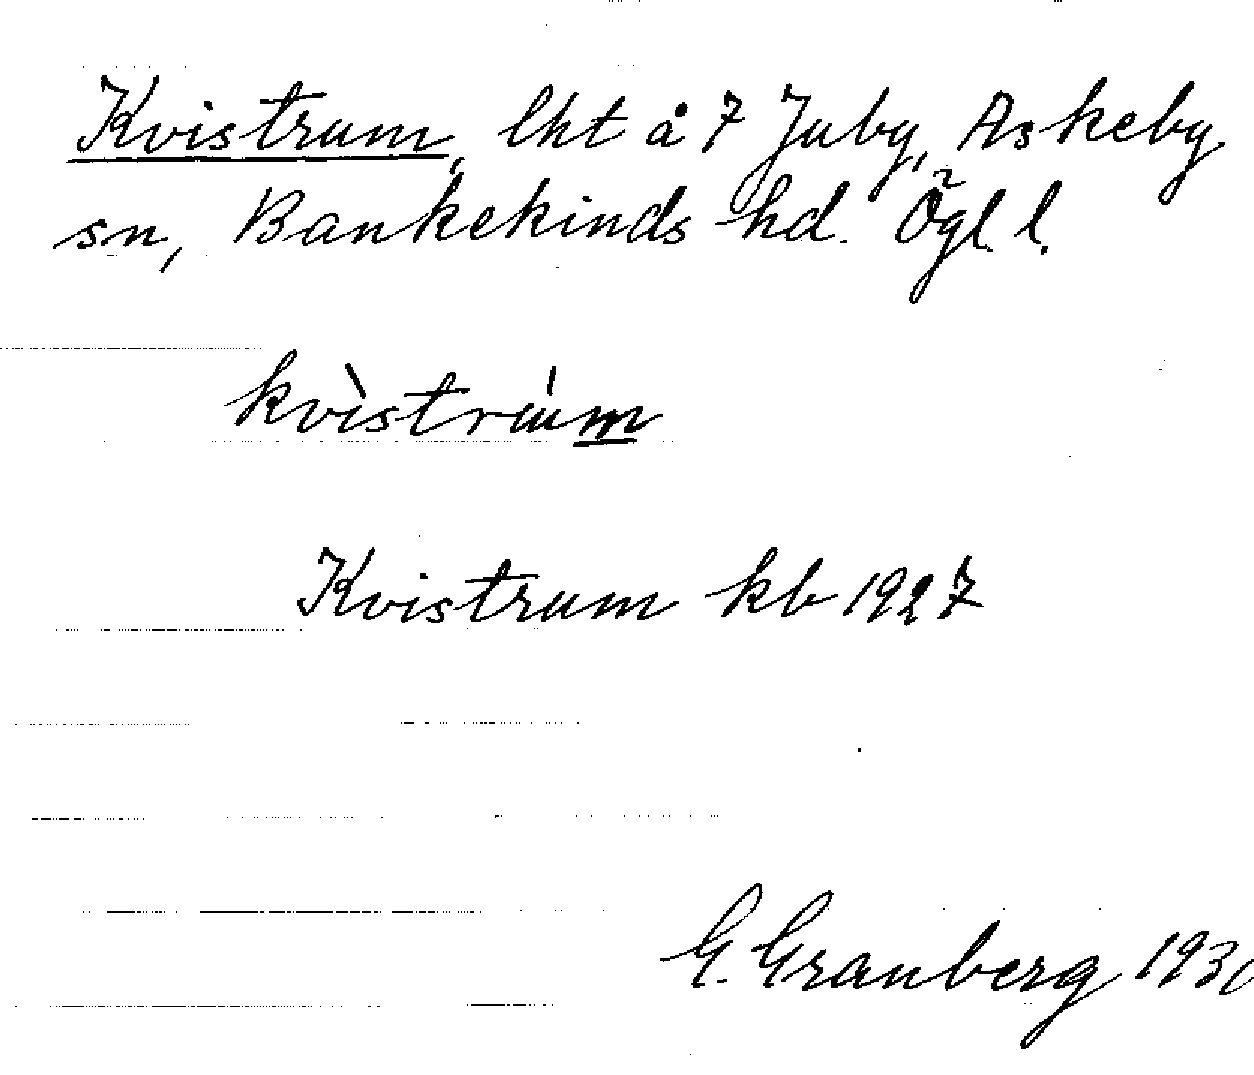 Kvistrum, lht å 7 Juby, Askeby
sn, Bankekinds hd. Ögl. l.
kvìstrúm
Kvistrum kb 1927
G. Granberg